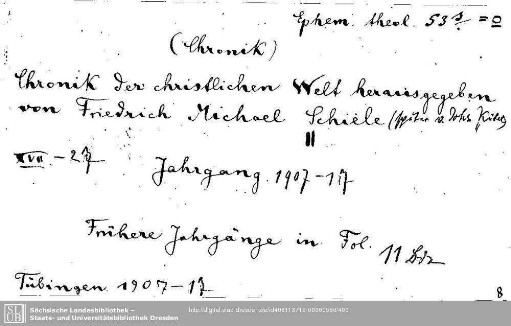 Ephem. theol. 53 s =0
(Chronik)
Chronik der christlichen Welt herausgegeben
von Friedrich Michael Schiele (später v. Joh.
II
XVII - 27
Jahrgang 1907-17
Frühere Jahrgänge in Fol.
11 Bde
Tübingen 1907-17
8
SLUB
Sächsische Landesbibliothek –
Staats- und Universitätsbibliothek Dresden